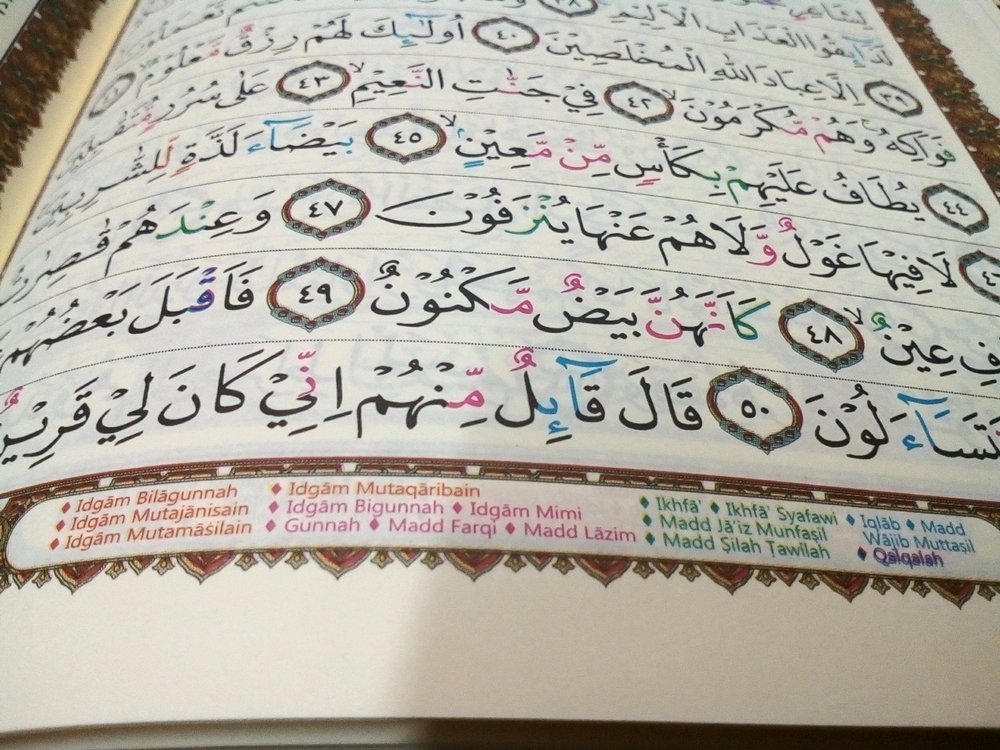 لَذَاۤىِٕقُوا الْعَذَابِ الْاَلِيْمِ ٣٨
٣٩ اِلَّا عِبَادَ اللّٰهِ الْمُخْلَصِيْنَ ٤٠ اُولٰۤىِٕكَ لَهُمْ رِزْقٌ مَّعْلُوْمٌ ٤١
فَوَاكِهُ وَهُمْ مُّكْرَمُوْنَۙ ٤٢ فِيْ جَنّٰتِ النَّعِيْمِۙ ٤٣ عَلٰى سُرُرٍ مُّتَقٰبِلِيْنَ
٤٤ يُطَافُ عَلَيْهِمْ بِكَأْسٍ مِّنْ مَّعِيْنٍۙ ٤٥ بَيْضَاۤءَ لَذَّةٍ لِّلشّٰرِبِيْنَ
٤٦ لَا فِيْهَا غَوْلٌ وَّلَا هُمْ عَنْهَا يُنْزَفُوْنَ ٤٧ وَعِنْدَهُمْ قٰصِرٰتُ
فِ عِيْنٌۙ ٤٨ كَاَنَّهُنَّ بَيْضٌ مَّكْنُوْنٌ ٤٩ فَاَقْبَلَ بَعْضُهُمْ
يَتَسَاۤءَلُوْنَ ٥٠ قَالَ قَاۤىِٕلٌ مِّنْهُمْ اِنِّيْ كَانَ لِيْ قَرِيْنٌ
Idgām Bilāgunnah
Idgām Mutajānisain
Idgām Mutamāśilain
Idgām Mutaqāribain
Idgām Bigunnah Idgām Mimi
Gunnah Madd Farqi Madd Lāzim
Ikhfā' Ikhfā' Syafawi
Madd Jā'iz Munfaşil
Madd Şilah Ţawīlah
Iqlāb Madd
Wājib Muttaşil
Qalqalah